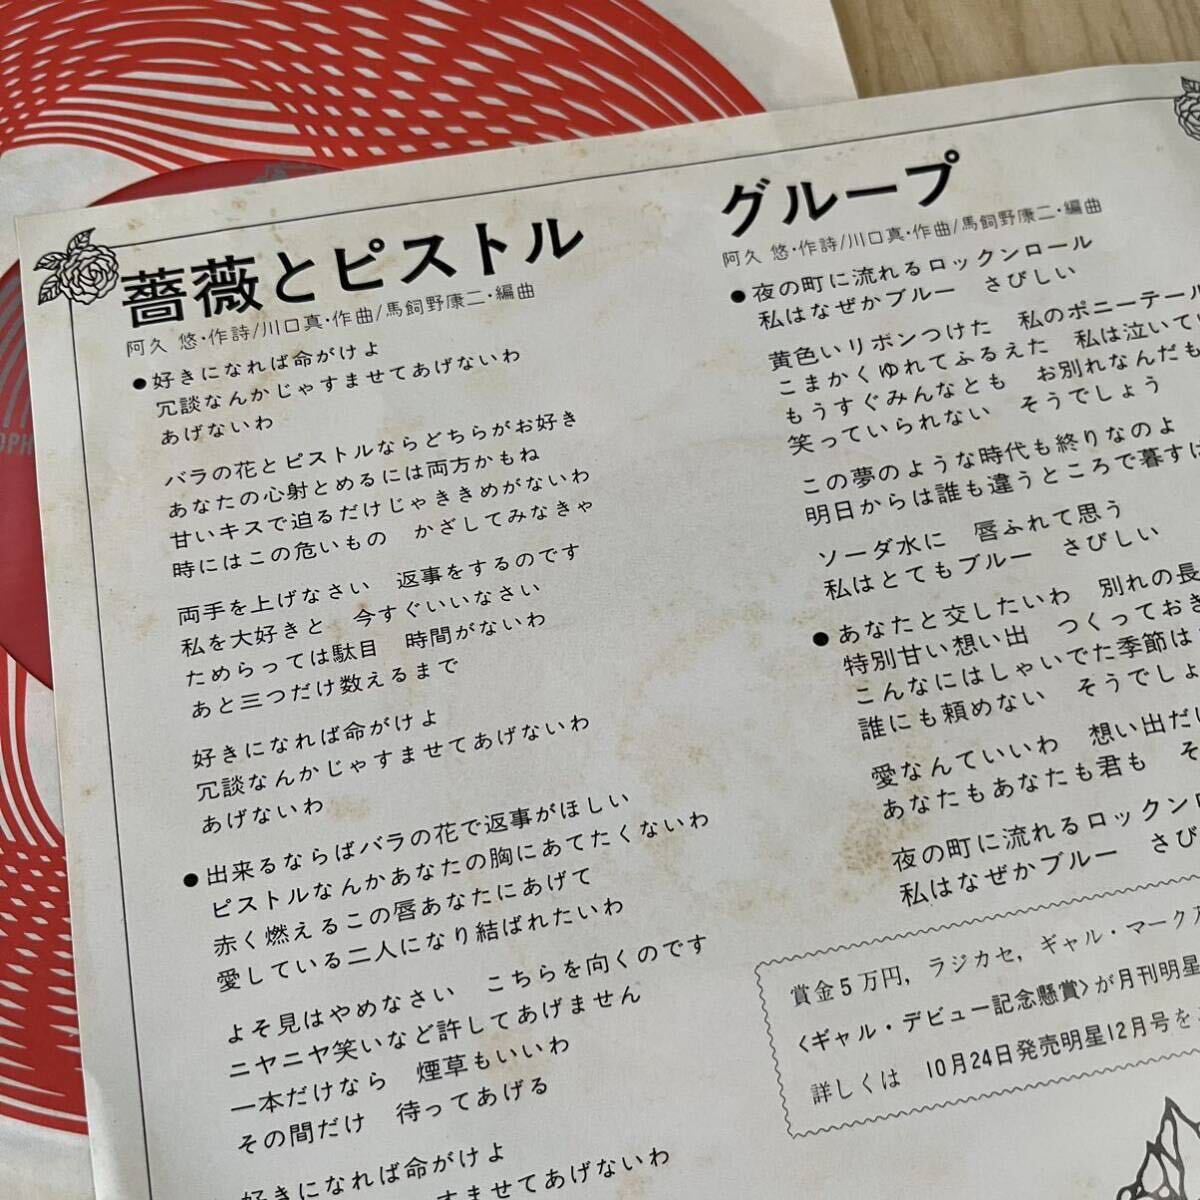 薔薇とピストル
阿久 悠・作詩/川口真・作曲/馬飼野康二・編曲
●好きになれば命がけよ
冗談なんかじゃすませてあげないわ
あげないわ
バラの花とピストルならどちらがお好き
あなたの心射とめるには両方かもね
甘いキスで迫るだけじゃききめがないわ
時にはこの危いもの かざしてみなきゃ
両手を上げなさい 返事をするのです
私を大好きと 今すぐいいなさい
ためらっては駄目 時間がないわ
あと三つだけ数えるまで
好きになれば命がけよ
冗談なんかじゃすませてあげないわ
あげないわ
●出来るならばバラの花で返事がほしい
ピストルなんかあなたの胸にあてたくないわ
赤く燃えるこの唇あなたにあげて
愛している二人になり結ばれたいわ
よそ見はやめなさい こちらを向くのです
ニヤニヤ笑いなど許してあげません
一本だけなら 煙草もいいわ
その間だけ 待ってあげる
好きになれば命がけよ
すませてあげないわ
グループ
阿久 悠・作詩/川口真・作曲/馬飼野康二・編曲
●夜の町に流れるロックンロール
私はなぜかブルー さびしい
黄色いリボンつけた 私のポニーテール
こまかくゆれてふるえた 私は泣いてい
もうすぐみんなとも お別れなんだも
笑っていられない そうでしょう
この夢のような時代も終りなのよ
明日からは誰も違うところで暮すは
ソーダ水に 唇ふれて思う
私はとてもブルー さびしい
●あなたと交したいわ 別れの長
特別甘い想い出 つくっておき
こんなにはしゃいでた季節は
誰にも頼めない そうでしょ
愛なんていいわ 想い出だけ
あなたもあなたも君も そ
夜の町に流れるロックンロ
私はなぜかブルー さび
賞金5万円，ラジカセ，ギャル・マークア
〈ギャル・デビュー記念懸賞〉が月刊明星
詳しくは 10月24日発売明星12月号を